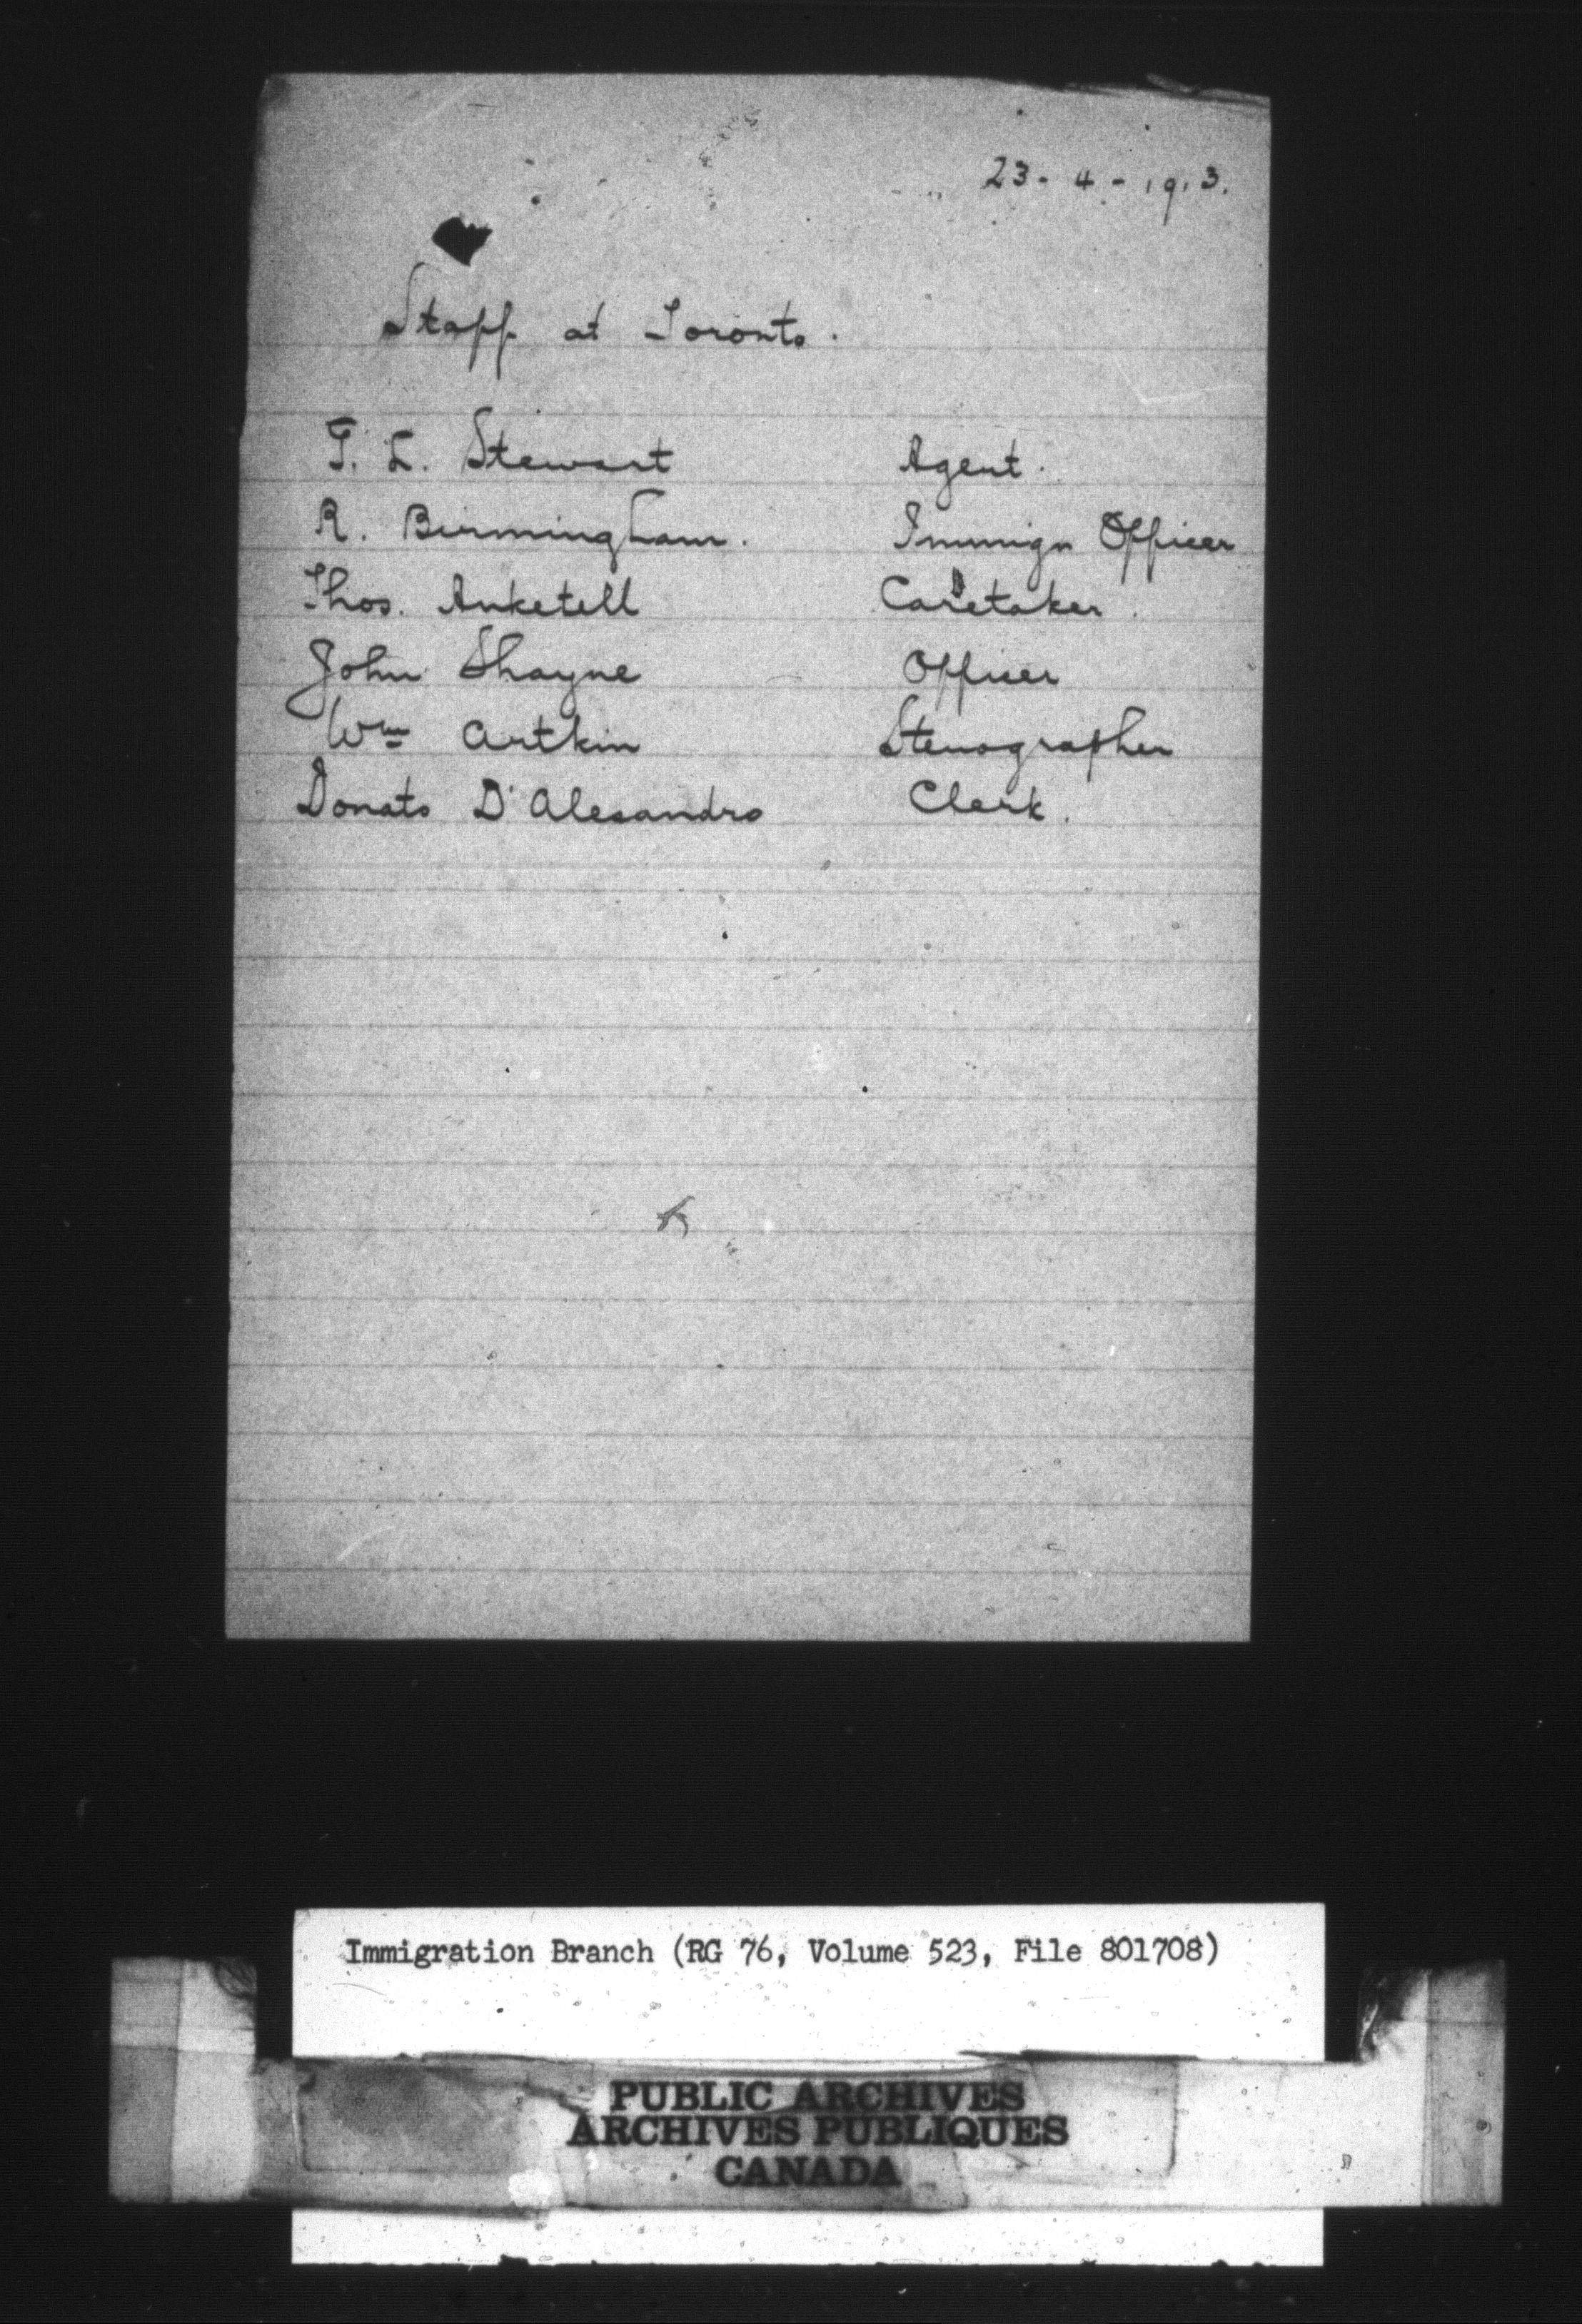 23-4-1913.
Staff at Toronto.
T. L. Stewart Agent.
R. Birmingham. Immign Officer
Thos. Anketell Caretaker.
John Shayne Officer
Wm Artkin Stenographer
Donato D'Alesandro Clerk.
Immigration Branch (RG 76, Volume 523, File 801708)
PUBLIC ARCHIVES
ARCHIVES PUBLIQUES
CANADA